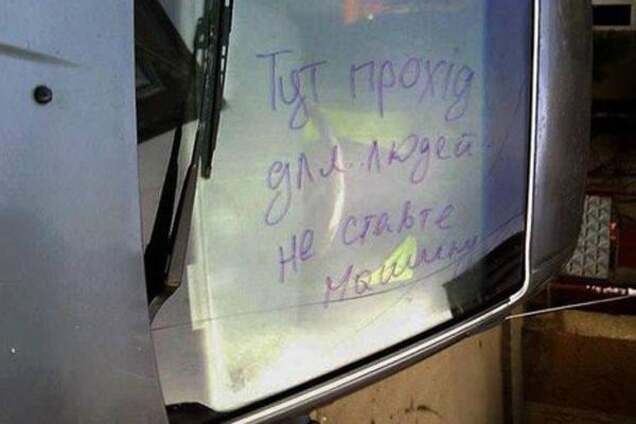 Тут прохід
для людей
не ставте
машину